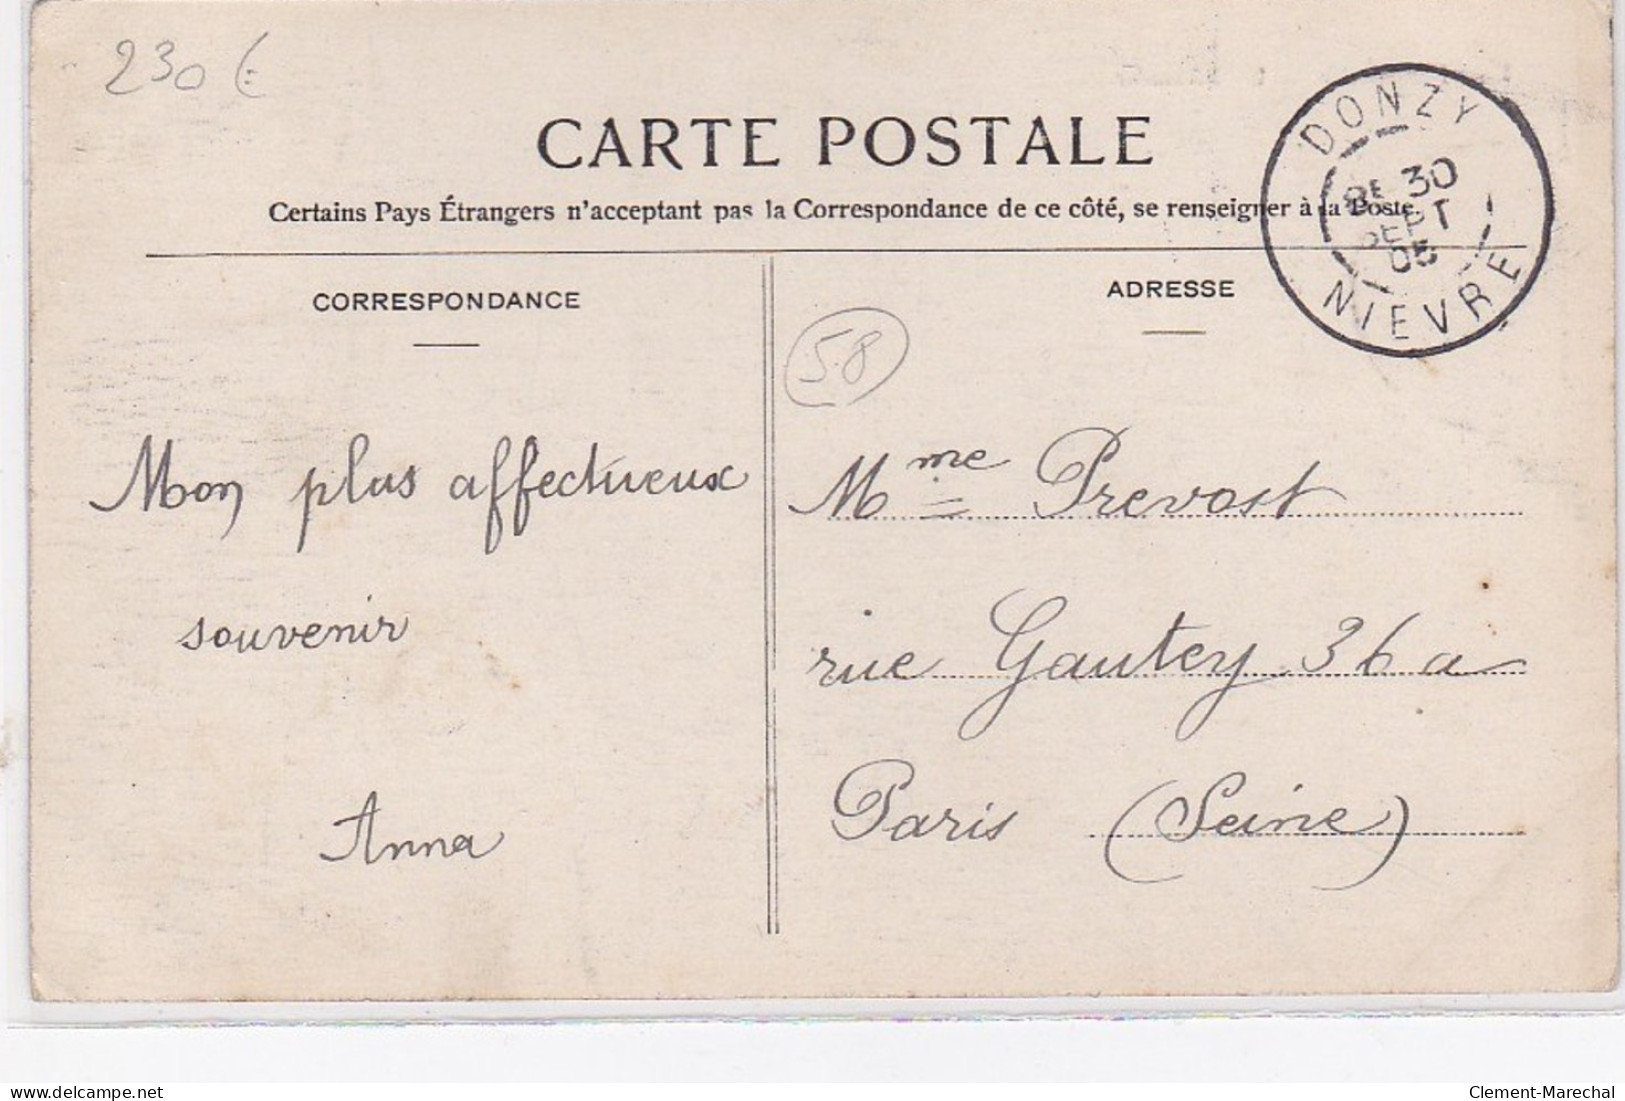 230€
CARTE POSTALE
Certains Pays Étrangers n'acceptant pas la Correspondance de ce côté, se renseigner à la Poste
DONZY
8E 30
SEPT
05
NIEVRE
CORRESPONDANCE
Mon plus affectueux
souvenir
Anna
ADRESSE
58
Mme Prevost
rue Gautey 36 a
Paris (Seine)
delcampe.net
Clement-Marechal